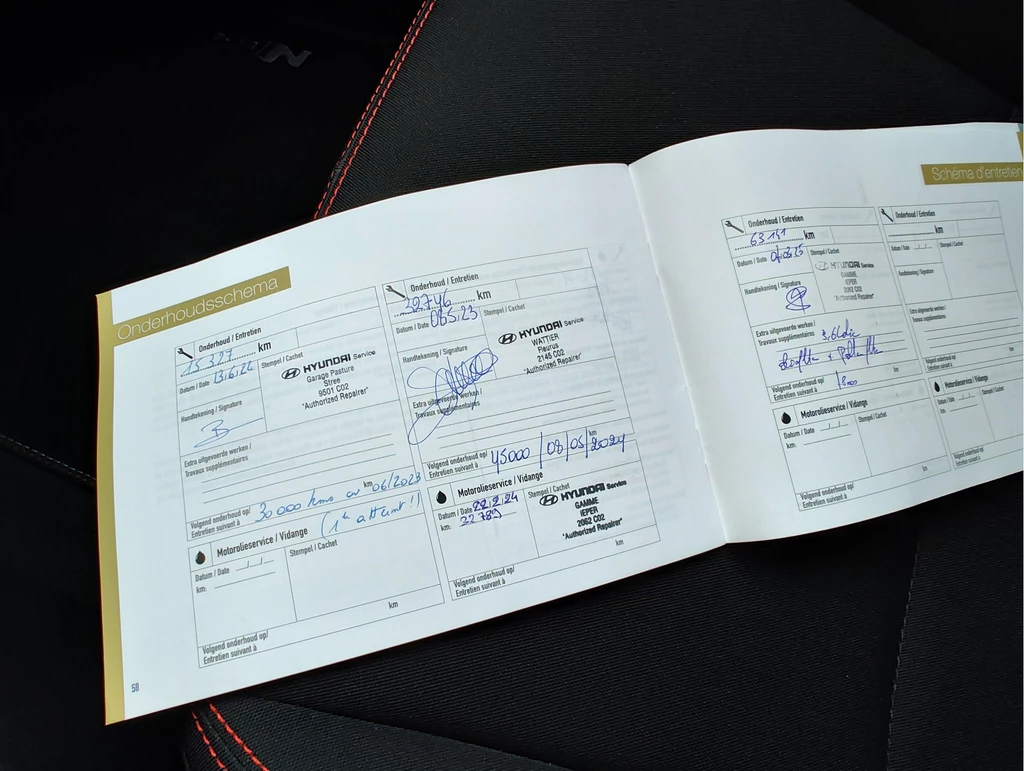 Onderhoudsschema
Onderhoud / Entretien
15.327 km
Datum / Date 13.6.22
Stempel / Cachet
HYUNDAI Service
Garage Pasture
Stree
9501 C02
"Authorized Repairer"
Handtekening / Signature
Extra uitgevoerde werken /
Travaux supplémentaires
Volgend onderhoud op/
Entretien suivant à
30 000 kms ou 06/2023
km
(1er atteint !)
Motorolieservice / Vidange
Datum / Date
Stempel / Cachet
km:
km
Volgend onderhoud op/
Entretien suivant à
58
Onderhoud / Entretien
29746 km
Datum / Date 08.5.23
Stempel / Cachet
HYUNDAI Service
WATTIER
Fleurus
2145 C02
"Authorized Repairer"
Handtekening / Signature
Extra uitgevoerde werken /
Travaux supplémentaires
km
Volgend onderhoud op/
Entretien suivant à
45000 / 08/05/2024
Motorolieservice / Vidange
Datum / Date 22.2.24
Stempel / Cachet
km:
HYUNDAI Service
GAMME
IEPER
2062 C02
"Authorized Repairer"
km
Volgend onderhoud op/
Entretien suivant à
Schéma d'entretien
Onderhoud / Entretien
63151 km
Datum / Date
Stempel / Cachet
HYUNDAI Service
GAMME
IEPER
2062 C02
"Authorized Repairer"
Handtekening / Signature
Extra uitgevoerde werken /
Travaux supplémentaires
km
Volgend onderhoud op/
Entretien suivant à
Motorolieservice / Vidange
Datum / Date
Stempel / Cachet
km:
km
Volgend onderhoud op/
Entretien suivant à
Onderhoud / Entretien
km
Datum / Date
Stempel / Cachet
Handtekening / Signature
Extra uitgevoerde werken /
Travaux supplémentaires
Volgend onderhoud op/
Entretien suivant à
km
Motorolieservice / Vidange
Datum / Date
Stempel / Cachet
km:
km
Volgend onderhoud op/
Entretien suivant à